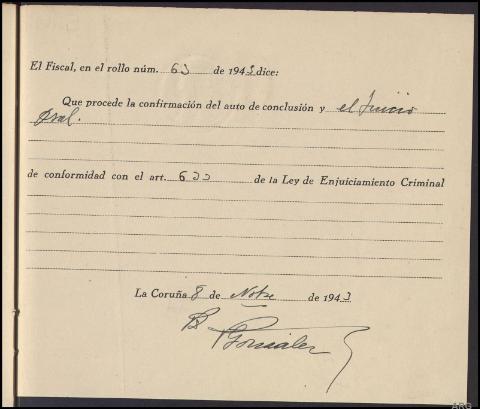 El Fiscal, en el rollo núm. 63 de 1943 dice:
Que procede la confirmación del auto de conclusión y el Juicio
Oral.
de conformidad con el art. 633 de la Ley de Enjuiciamiento Criminal
La Coruña 8 de Nbre de 1943
B. González
ARG